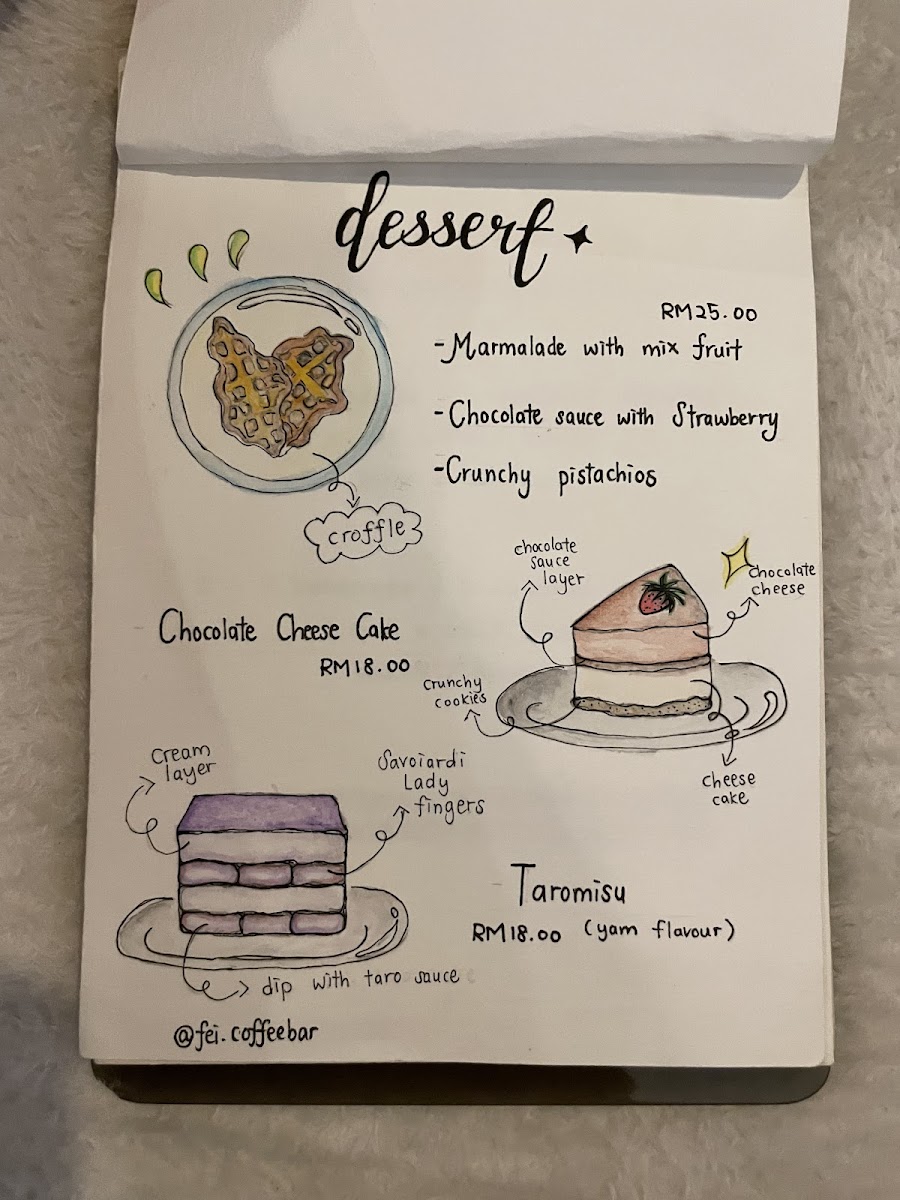 dessert
RM25.00
-Marmalade with mix fruit
-Chocolate sauce with Strawberry
-Crunchy pistachios
croffle
chocolate
sauce
layer
Chocolate
cheese
Chocolate Cheese Cake
RM18.00
Crunchy
cookies
cheese
cake
Cream
layer
Savoiardi
Lady
fingers
Taromisu
RM18.00 (yam flavour)
dip with taro sauce
@fei.coffeebar